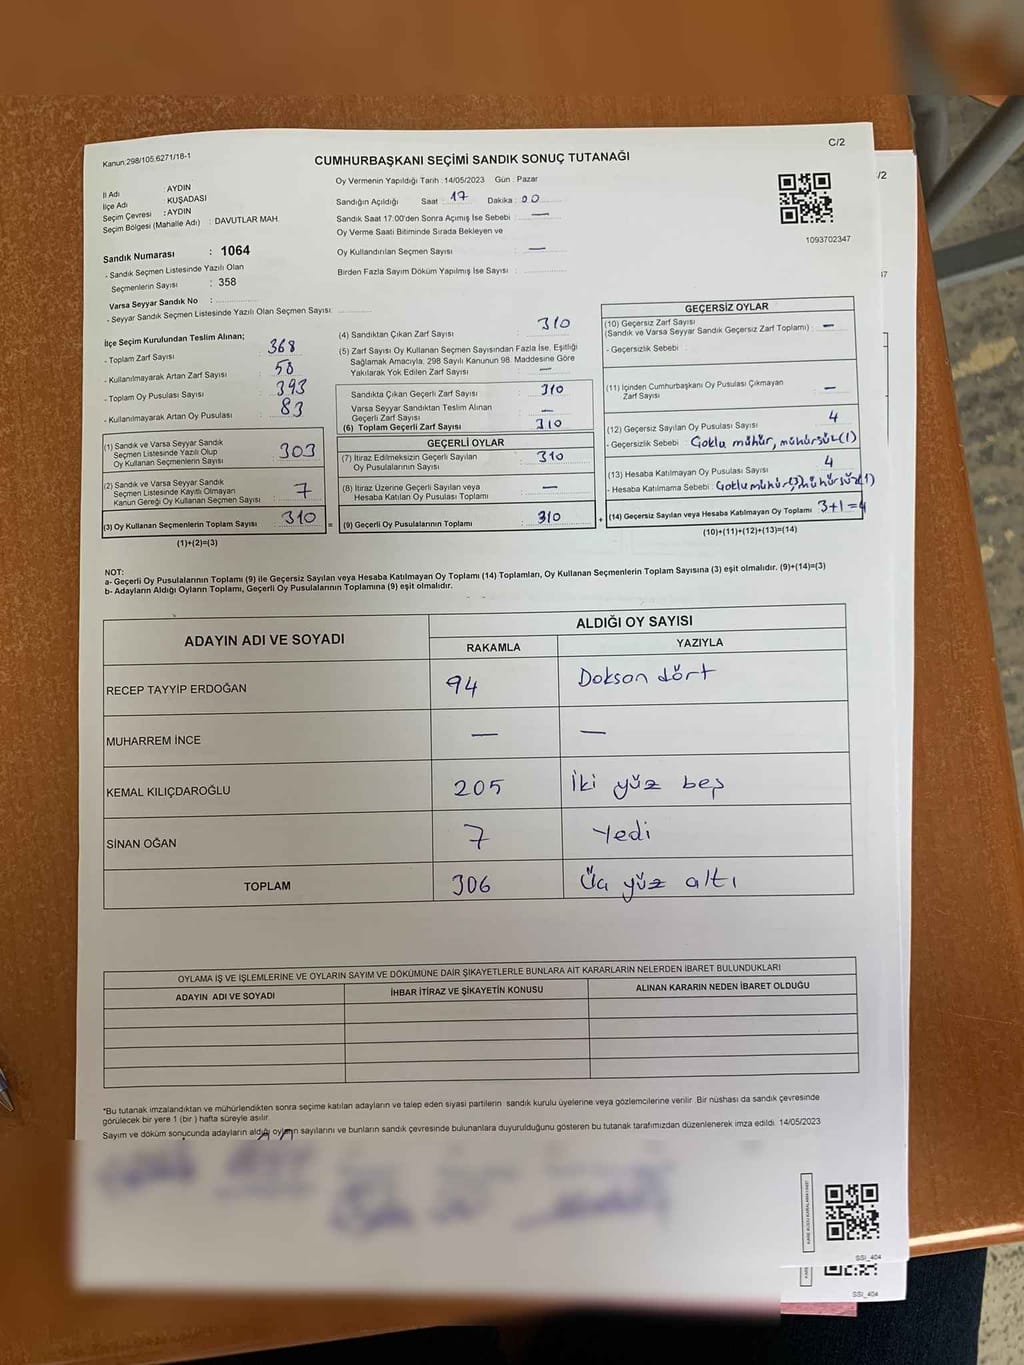 C/2
/2
Kanun 298/105.6271/18-1
CUMHURBAŞKANI SEÇİMİ SANDIK SONUÇ TUTANAĞI
İl Adı : AYDIN
İlçe Adı : KUŞADASI
Seçim Çevresi : AYDIN
Seçim Bölgesi (Mahalle Adı) : DAVUTLAR MAH.
Sandık Numarası : 1064
- Sandık Seçmen Listesinde Yazılı Olan
Seçmenlerin Sayısı : 358
Varsa Seyyar Sandık No :
- Seyyar Sandık Seçmen Listesinde Yazılı Olan Seçmen Sayısı:
Oy Vermenin Yapıldığı Tarih : 14/05/2023 Gün : Pazar
Sandığın Açıldığı Saat : 17 Dakika : 00
Sandık Saat 17:00'den Sonra Açımış İse Sebebi : —
Oy Verme Saati Bitiminde Sırada Bekleyen ve
Oy Kullandırılan Seçmen Sayısı : —
Birden Fazla Sayım Döküm Yapılmış İse Sayısı :
1093702347
İlçe Seçim Kurulundan Teslim Alınan;
- Toplam Zarf Sayısı : 368
- Kullanılmayarak Artan Zarf Sayısı : 58
- Toplam Oy Pusulası Sayısı : 393
- Kullanılmayarak Artan Oy Pusulası : 83
(1) Sandık ve Varsa Seyyar Sandık
Seçmen Listesinde Yazılı Olup
Oy Kullanan Seçmenlerin Sayısı : 303
(2) Sandık ve Varsa Seyyar Sandık
Seçmen Listesinde Kayıtlı Olmayan
Kanun Gereği Oy Kullanan Seçmen Sayısı : 7
(3) Oy Kullanan Seçmenlerin Toplam Sayısı : 310
(1)+(2)=(3)
=
(4) Sandıktan Çıkan Zarf Sayısı : 310
(5) Zarf Sayısı Oy Kullanan Seçmen Sayısından Fazla İse, Eşitliği
Sağlamak Amacıyla, 298 Sayılı Kanunun 98. Maddesine Göre
Yakılarak Yok Edilen Zarf Sayısı : —
Sandıkta Çıkan Geçerli Zarf Sayısı : 310
Varsa Seyyar Sandıktan Teslim Alınan
Geçerli Zarf Sayısı : —
(6) Toplam Geçerli Zarf Sayısı : 310
GEÇERLİ OYLAR
(7) İtiraz Edilmeksizin Geçerli Sayılan
Oy Pusulalarının Sayısı : 310
(8) İtiraz Üzerine Geçerli Sayılan veya
Hesaba Katılan Oy Pusulası Toplamı : —
(9) Geçerli Oy Pusulalarının Toplamı : 310
+
GEÇERSİZ OYLAR
(10) Geçersiz Zarf Sayısı
(Sandık ve Varsa Seyyar Sandık Geçersiz Zarf Toplamı) : —
- Geçersizlik Sebebi :
(11) İçinden Cumhurbaşkanı Oy Pusulası Çıkmayan
Zarf Sayısı : —
(12) Geçersiz Sayılan Oy Pusulası Sayısı : 4
- Geçersizlik Sebebi : Çoklu mühür, mühürsüz(1)
(13) Hesaba Katılmayan Oy Pusulası Sayısı : 4
- Hesaba Katılmama Sebebi : Çoklu mühür(3) mühürsüz(1)
(14) Geçersiz Sayılan veya Hesaba Katılmayan Oy Toplamı : 3+1=4
(10)+(11)+(12)+(13)=(14)
NOT:
a- Geçerli Oy Pusulalarının Toplamı (9) ile Geçersiz Sayılan veya Hesaba Katılmayan Oy Toplamı (14) Toplamları, Oy Kullanan Seçmenlerin Toplam Sayısına (3) eşit olmalıdır. (9)+(14)=(3)
b- Adayların Aldığı Oyların Toplamı, Geçerli Oy Pusulalarının Toplamına (9) eşit olmalıdır.
ADAYIN ADI VE SOYADI ALDIĞI OY SAYISI
RAKAMLA YAZIYLA
RECEP TAYYİP ERDOĞAN 94 Dokson dört
MUHARREM İNCE — —
KEMAL KILIÇDAROĞLU 205 İki yüz beş
SİNAN OĞAN 7 Yedi
TOPLAM 306 Üç yüz altı
OYLAMA İŞ VE İŞLEMLERİNE VE OYLARIN SAYIM VE DÖKÜMÜNE DAİR ŞİKAYETLERLE BUNLARA AİT KARARLARIN NELERDEN İBARET BULUNDUKLARI
ADAYIN ADI VE SOYADI İHBAR İTİRAZ VE ŞİKAYETİN KONUSU ALINAN KARARIN NEDEN İBARET OLDUĞU
*Bu tutanak imzalandıktan ve mühürlendikten sonra seçime katılan adayların ve talep eden siyasi partilerin sandık kurulu üyelerine veya gözlemcilerine verilir. Bir nüshası da sandık çevresinde
görülecek bir yere 1 (bir) hafta süreyle asılır.
Sayım ve döküm sonucunda adayların aldığı oyların sayılarını ve bunların sandık çevresinde bulunanlara duyurulduğunu gösteren bu tutanak tarafımızdan düzenlenerek imza edildi. 14/05/2023
SSI_404
SSI_404